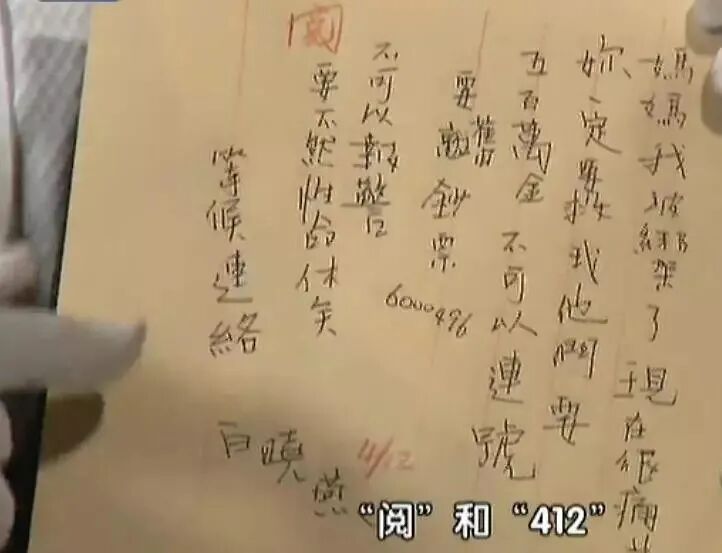 媽媽我被綁架了現在很痛
妳一定要救我他們要
五百萬金 不可以連號
要舊鈔票
6000496
不可以報警
要不然性命休矣
等候連絡
白曉燕
閱
4/12
“阅”和“412”